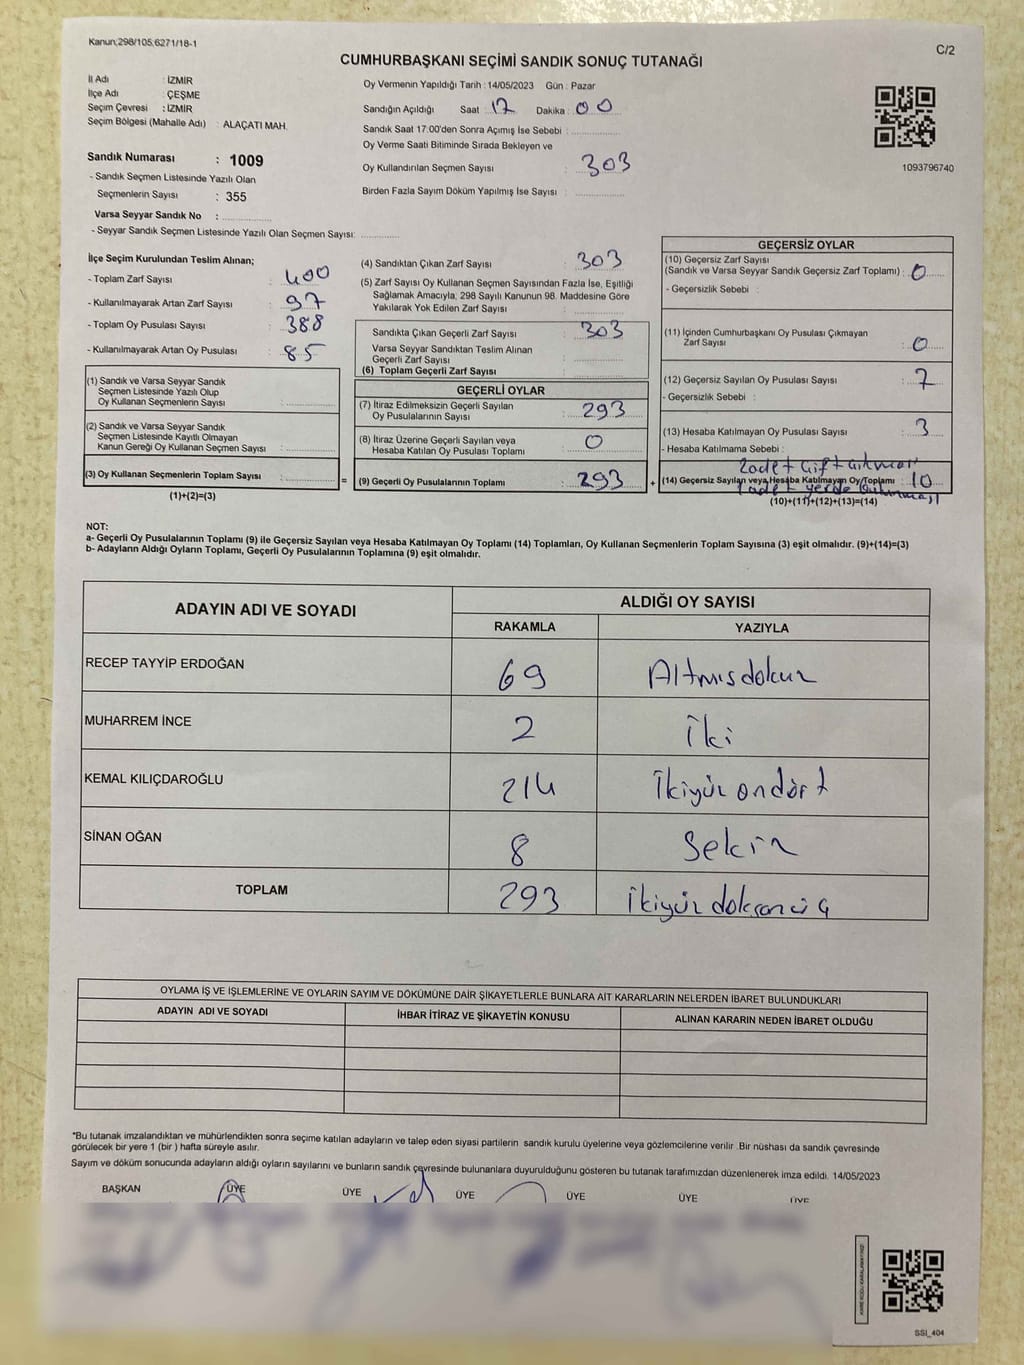 Kanun;298/105,6271/18-1
C/2
CUMHURBAŞKANI SEÇİMİ SANDIK SONUÇ TUTANAĞI
İl Adı : İZMİR
İlçe Adı : ÇEŞME
Seçim Çevresi : İZMİR
Seçim Bölgesi (Mahalle Adı) : ALAÇATI MAH.
Oy Vermenin Yapıldığı Tarih : 14/05/2023 Gün : Pazar
Sandığın Açıldığı Saat : 17 Dakika : 00
Sandık Saat 17:00'den Sonra Açımış İse Sebebi :
Oy Verme Saati Bitiminde Sırada Bekleyen ve
Oy Kullandırılan Seçmen Sayısı : 303
Birden Fazla Sayım Döküm Yapılmış İse Sayısı :
1093796740
Sandık Numarası : 1009
- Sandık Seçmen Listesinde Yazılı Olan
Seçmenlerin Sayısı : 355
Varsa Seyyar Sandık No :
- Seyyar Sandık Seçmen Listesinde Yazılı Olan Seçmen Sayısı:
İlçe Seçim Kurulundan Teslim Alınan;
- Toplam Zarf Sayısı : 400
- Kullanılmayarak Artan Zarf Sayısı : 97
- Toplam Oy Pusulası Sayısı : 388
- Kullanılmayarak Artan Oy Pusulası : 85
(1) Sandık ve Varsa Seyyar Sandık
Seçmen Listesinde Yazılı Olup
Oy Kullanan Seçmenlerin Sayısı :
(2) Sandık ve Varsa Seyyar Sandık
Seçmen Listesinde Kayıtlı Olmayan
Kanun Gereği Oy Kullanan Seçmen Sayısı :
(3) Oy Kullanan Seçmenlerin Toplam Sayısı :
(1)+(2)=(3)
(4) Sandıktan Çıkan Zarf Sayısı : 303
(5) Zarf Sayısı Oy Kullanan Seçmen Sayısından Fazla İse, Eşitliği
Sağlamak Amacıyla; 298 Sayılı Kanunun 98. Maddesine Göre
Yakılarak Yok Edilen Zarf Sayısı :
Sandıkta Çıkan Geçerli Zarf Sayısı : 303
Varsa Seyyar Sandıktan Teslim Alınan
Geçerli Zarf Sayısı :
(6) Toplam Geçerli Zarf Sayısı :
GEÇERLİ OYLAR
(7) İtiraz Edilmeksizin Geçerli Sayılan
Oy Pusulalarının Sayısı : 293
(8) İtiraz Üzerine Geçerli Sayılan veya
Hesaba Katılan Oy Pusulası Toplamı : 0
= (9) Geçerli Oy Pusulalarının Toplamı : 293 +
GEÇERSİZ OYLAR
(10) Geçersiz Zarf Sayısı
(Sandık ve Varsa Seyyar Sandık Geçersiz Zarf Toplamı) : 0
- Geçersizlik Sebebi :
(11) İçinden Cumhurbaşkanı Oy Pusulası Çıkmayan
Zarf Sayısı : 0
(12) Geçersiz Sayılan Oy Pusulası Sayısı : 7
- Geçersizlik Sebebi :
(13) Hesaba Katılmayan Oy Pusulası Sayısı : 3
- Hesaba Katılmama Sebebi :
2 adet çift çıkması
(14) Geçersiz Sayılan veya Hesaba Katılmayan Oy Toplamı : 10
1 adet yerde bulunması
(10)+(11)+(12)+(13)=(14)
NOT:
a- Geçerli Oy Pusulalarının Toplamı (9) ile Geçersiz Sayılan veya Hesaba Katılmayan Oy Toplamı (14) Toplamları, Oy Kullanan Seçmenlerin Toplam Sayısına (3) eşit olmalıdır. (9)+(14)=(3)
b- Adayların Aldığı Oyların Toplamı, Geçerli Oy Pusulalarının Toplamına (9) eşit olmalıdır.
ADAYIN ADI VE SOYADI
ALDIĞI OY SAYISI
RAKAMLA YAZIYLA
RECEP TAYYİP ERDOĞAN 69 Altmısdokuz
MUHARREM İNCE 2 İki
KEMAL KILIÇDAROĞLU 214 İkiyüz ondört
SİNAN OĞAN 8 Sekiz
TOPLAM 293 İkiyüz doksanüç
OYLAMA İŞ VE İŞLEMLERİNE VE OYLARIN SAYIM VE DÖKÜMÜNE DAİR ŞİKAYETLERLE BUNLARA AİT KARARLARIN NELERDEN İBARET BULUNDUKLARI
ADAYIN ADI VE SOYADI İHBAR İTİRAZ VE ŞİKAYETİN KONUSU ALINAN KARARIN NEDEN İBARET OLDUĞU
*Bu tutanak imzalandıktan ve mühürlendikten sonra seçime katılan adayların ve talep eden siyasi partilerin sandık kurulu üyelerine veya gözlemcilerine verilir .Bir nüshası da sandık çevresinde
görülecek bir yere 1 (bir ) hafta süreyle asılır.
Sayım ve döküm sonucunda adayların aldığı oyların sayılarını ve bunların sandık çevresinde bulunanlara duyurulduğunu gösteren bu tutanak tarafımızdan düzenlenerek imza edildi. 14/05/2023
BAŞKAN ÜYE ÜYE ÜYE ÜYE ÜYE ÜYE
SSI_404